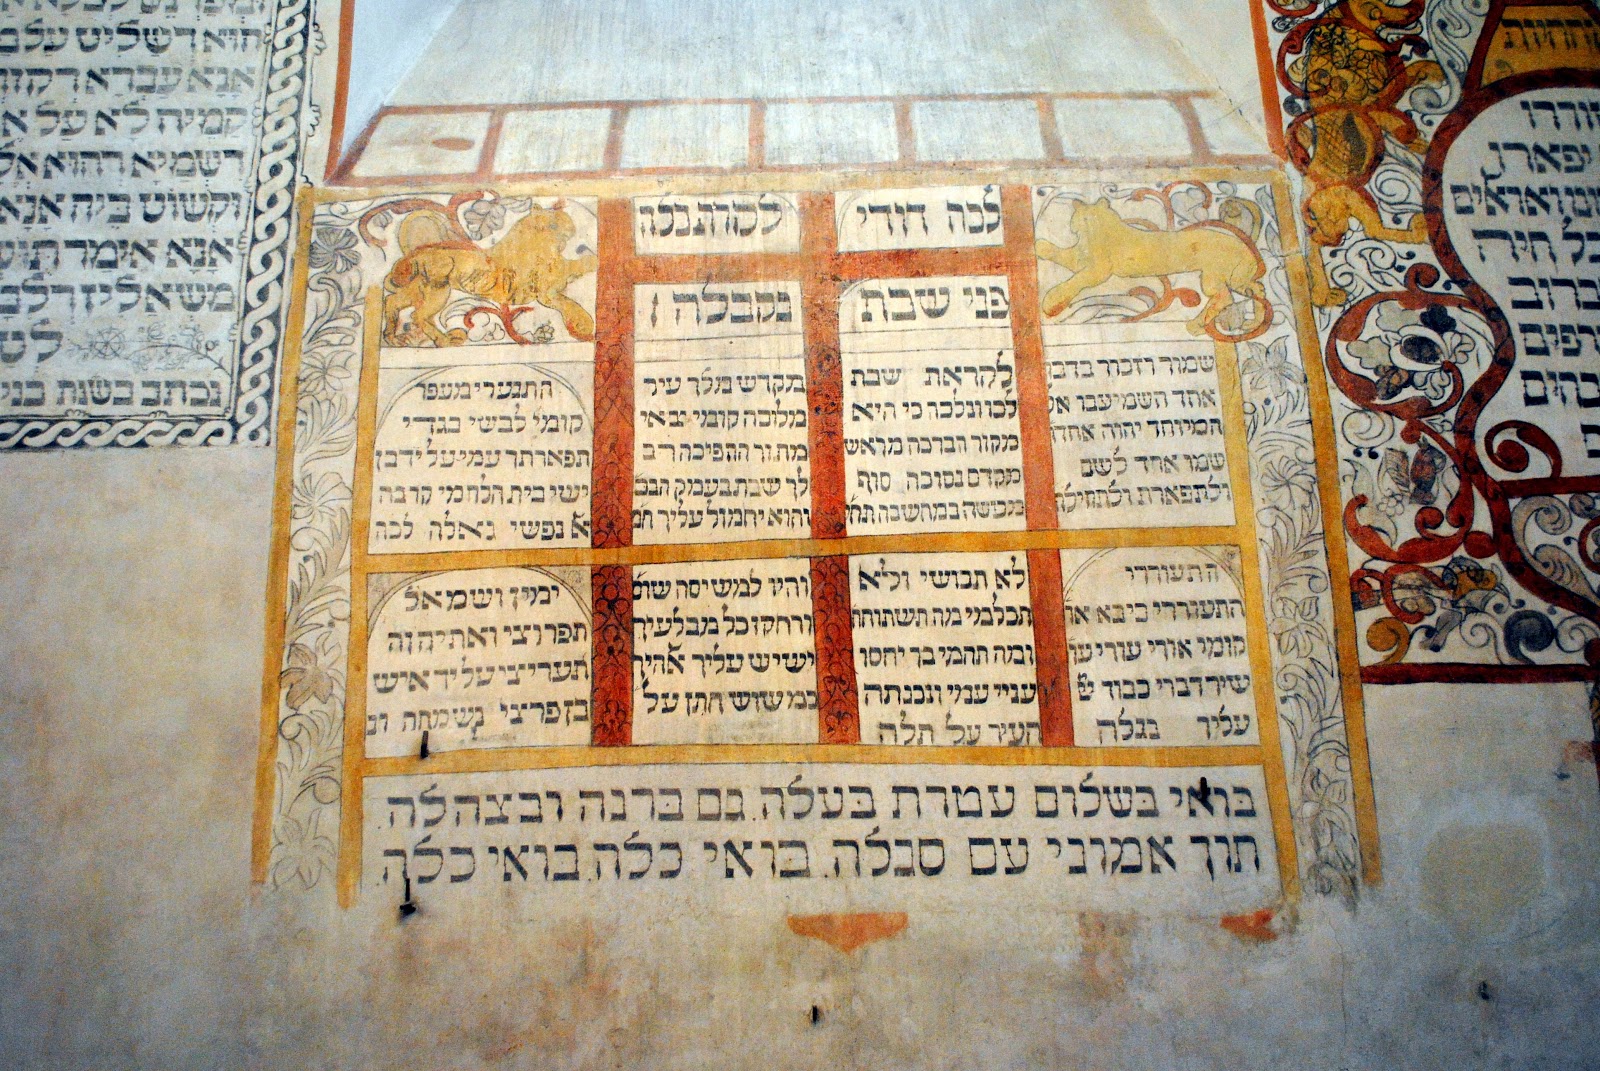 הוא דשליש עלם
אנא עברא דקוד
קמיה לא על א
דשמיא דהוא אל
וקשוט ביה אנא
אנא אימר תוש
לש
נכתב בשנת
לכה דודי לקרת כלה
פני שבת נקבלה
שמור וזכור בדבר
אחד השמיענו אל
המיוחד יהוה אחד ו
שמו אחד לשם
ולתפארת ולתהילה
לקראת שבת
לכו ונלכה כי היא
מקור הברכה מראש
מקדם נסוכה סוף
מעשה במחשבה תחי
מקדש מלך עיר
מלוכה קומי צאי
מתוך ההפיכה רב
לך שבת בעמק הבכ
והוא יחמול עליך חמ
התנערי מעפר
קומי לבשי בגדי
תפארתך עמי על יד בן
ישי בית הלחמי קרבה
א נפשי גאלה לכה
התעוררי
התעוררי כי בא או
קומי אורי עורי עו
שיר דברי כבוד
עליך נגלה
לא תבושי ולא
תכלמי מה תשתוחח
ומה תהמי בך יחסו
עניי עמי ונבנתה
העיר על תלה
והיו למשיסה שוס
ורחקו כל מבלעיך
ישיש עליך אהיך
כמשוש חתן על
ימין ושמאל
תפרוצי ואת יהוה
תעריצי על יד איש
בן פרצי נשמחה ונ
בואי בשלום עטרת בעלה. גם ברנה ובצהלה.
תוך אמוני עם סגלה. בואי כלה. בואי כלה.
יפאר
כל חיה
ברוב